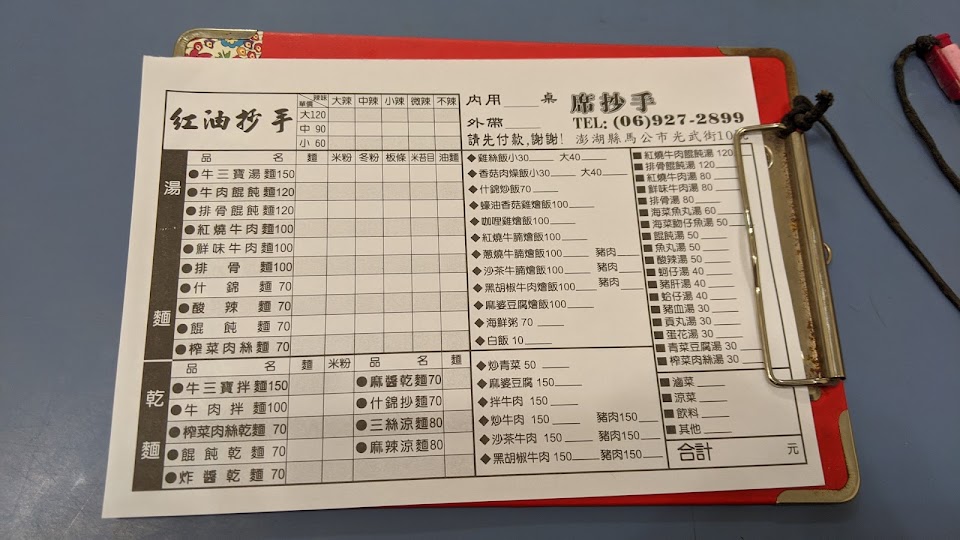 紅油抄手
辣味 單價 大辣 中辣 小辣 微辣 不辣
大120
中 90
小 60
內用____桌
外帶____
請先付款,謝謝!
席抄手
TEL: (06)927-2899
澎湖縣馬公市光武街10
湯麵
品名 麵 米粉 冬粉 板條 米苔目 油麵
●牛三寶湯麵150
●牛肉餛飩麵120
●排骨餛飩麵120
●紅燒牛肉麵100
●鮮味牛肉麵100
●排骨麵100
●什錦麵 70
●酸辣麵 70
●餛飩麵 70
●榨菜肉絲麵 70
乾麵
品名 麵 米粉 品名 麵
●牛三寶拌麵150
●牛肉拌麵100
●榨菜肉絲乾麵 70
●餛飩乾麵 70
●炸醬乾麵 70
●麻醬乾麵70
●什錦抄麵70
●三絲涼麵80
●麻辣涼麵80
◆雞絲飯小30____ 大40____
◆香菇肉燥飯小30____ 大40____
◆什錦炒飯70____
◆蠔油香菇雞燴飯100____
◆咖哩雞燴飯100____
◆紅燒牛腩燴飯100____
◆蔥燒牛腩燴飯100____ 豬肉____
◆沙茶牛腩燴飯100____ 豬肉____
◆黑胡椒牛肉燴飯100____ 豬肉____
◆麻婆豆腐燴飯100____
◆海鮮粥 70____
◆白飯 10____
◆炒青菜 50____
◆麻婆豆腐 150____
◆拌牛肉 150____
◆炒牛肉 150____ 豬肉150____
◆沙茶牛肉 150____ 豬肉150____
◆黑胡椒牛肉 150____ 豬肉150____
■紅燒牛肉餛飩湯 120____
■排骨餛飩湯 120____
■紅燒牛肉湯 80____
■鮮味牛肉湯 80____
■排骨湯 80____
■海菜魚丸湯 60____
■海菜魩仔魚湯 50____
■餛飩湯 50____
■魚丸湯 50____
■酸辣湯 50____
■蚵仔湯 40____
■豬肝湯 40____
■蛤仔湯 40____
■豬血湯 30____
■貢丸湯 30____
■蛋花湯 30____
■青菜豆腐湯 30____
■榨菜肉絲湯 30____
■滷菜____
■涼菜____
■飲料____
■其他____
合計 元